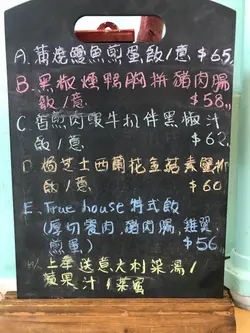 A. 蒲燒鰻魚煎蛋飯/意 $65
B. 黑椒煙鴨胸拼豬肉腸
飯/意 $58
C 香煎肉眼牛扒伴黑椒汁
飯/意 $62
D 焗芝士西蘭花金菇素蟹柳
飯/意 $60
E. True house 特式飯
(厚切餐肉,豬肉腸,雞翼
煎蛋) $56
以上華送意大利菜湯/
蘋果汁/菜蜜